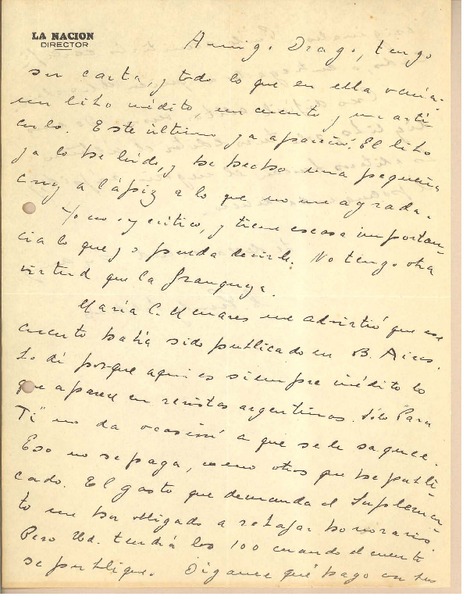 LA NACION
DIRECTOR
Amigo Drago, tengo
su carta, y todo lo que en ella venía:
un libro inédito, un cuento y un artí-
culo. Este último ya apareció. El libro
ya lo he leído, y he hecho una pequeña
cruz a lápiz a lo que no me agrada.
Yo no soy crítico, y tiene escasa importan-
cia lo que yo pueda decirle. No tengo otra
virtud que la franqueza.
María C. Menares me advirtió que ese
cuento había sido publicado en B. Aires.
Lo dí porque aquí es siempre inédito lo
que aparece en revistas argentinas. Sólo "Para
Ti" no da ocasión a que se le saquee.
Eso no se paga, como otros que he publi-
cado. El gasto que demanda el Suplemen-
to me ha obligado a rebajar honorarios.
Pero Ud. tendrá los 100 cuando el cuento
se publique. Dígame qué hago con sus